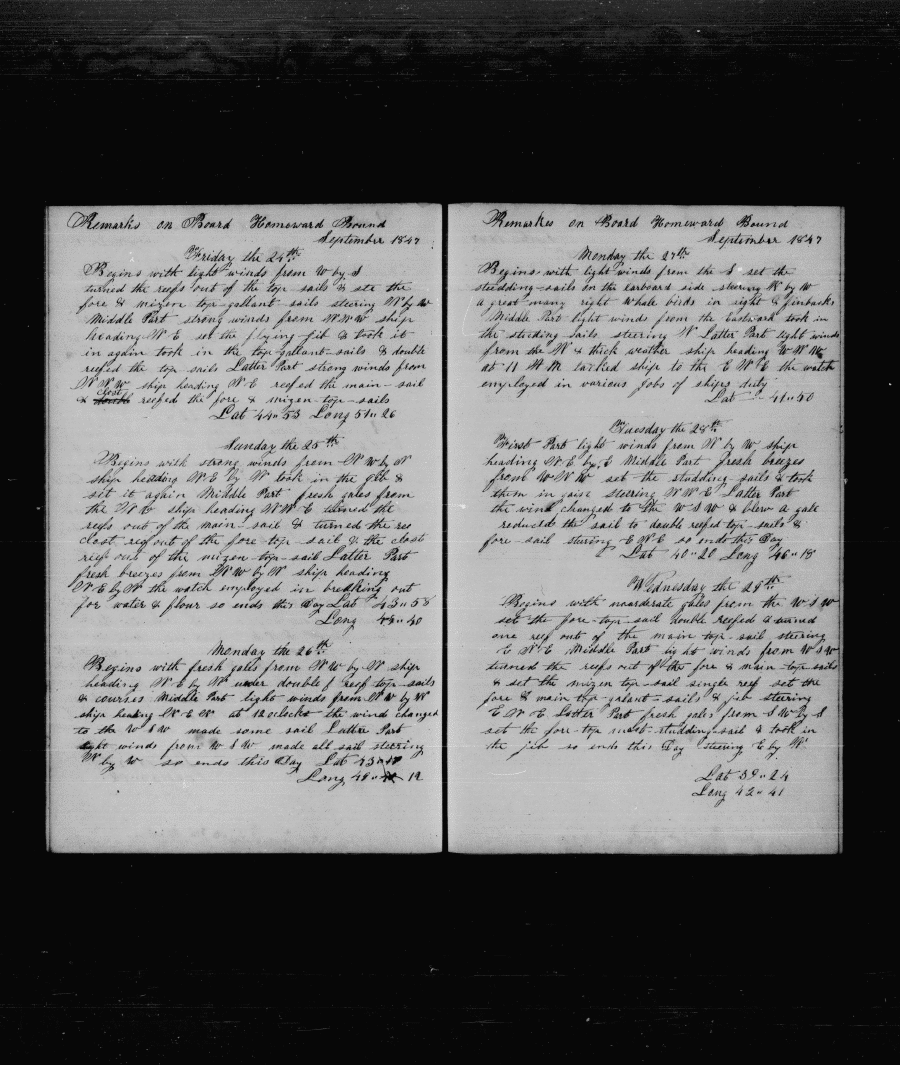 Remarks on Board Homeward Bound
September 1847
Friday the 24th
Begins with light winds from W by S
turned the reefs out of the top sail & set the
fore & mizen top-gallant-sails steering N by W
Middle Part strong winds from WNW ship
heading N E set the flying jib & took it
in again took in the top gallant-sails & double
reefed the top sails Latter Part strong winds from
N N W ship heading N E reefed the main-sail
& close reefed the fore & mizen-top-sails
Lat 44" 53 Long 51" 26
Sunday the 25th
Begins with strong winds from N W by N
ship heading N E by N took in the jib &
set it again Middle Part fresh gales from
the N W ship heading N N E turned the
reefs out of the main-sail & turned the
close reef out of the fore-top-sail & the close
reef out of the mizen-top-sail Latter Part
fresh breezes from N W by N ship heading
N E by N the watch employed in breaking out
for water & flour so ends this Day Lat 43" 58
Long 48" 40
Monday the 26th
Begins with fresh gales from N W by N ship
heading N E by N under double reef top-sails
& courses Middle Part light winds from N W by N
ship heading N E N at 12 oclock the wind changed
to the W S W made some sail Latter Part
light winds from W S W made all sail steering
N by W so ends this Day Lat 43"
Long 48" 19
Remarkes on Board Homeward Bound
September 1847
Monday the 27th
Begins with light winds from the S set the
studding-sails on the larboard side steering N by W
a great many right whale birds in sight & finbacks
Middle Part light winds from the Eastward took in
the studing sails steering N Latter Part light winds
from the N & thick weather ship heading W N W
at 11 A M tacked ship to the E N E the watch
employed in various jobs of ships duty
Lat 41" 50
Tuesday the 28th
First Part light winds from N by W ship
heading N E by S Middle Part fresh breezes
from W N W set the studding-sails & took
them in gaise steering N N E Latter Part
the wind changed to the W S W & blew a gale
reduced the sail to double reefed top-sails &
fore-sail steering E N E so ends this Day
Lat 40" 20 Long 46" 18
Wednesday the 29th
Begins with moarderate gales from the W S W
set the fore-top-sail double reefed & turned
one reef out of the main top-sail steering
E N E Middle Part light winds from W S W
turned the reefs out of the fore & main-top-sails
& set the mizen top-sail single reef set the
fore & main top-galant-sails & jib steering
E N E Latter Part fresh gales from S W by S
set the fore-top mast-studding-sail & took in
the jib so ends this Day steering E by N
Lat 39" 24
Long 42" 41